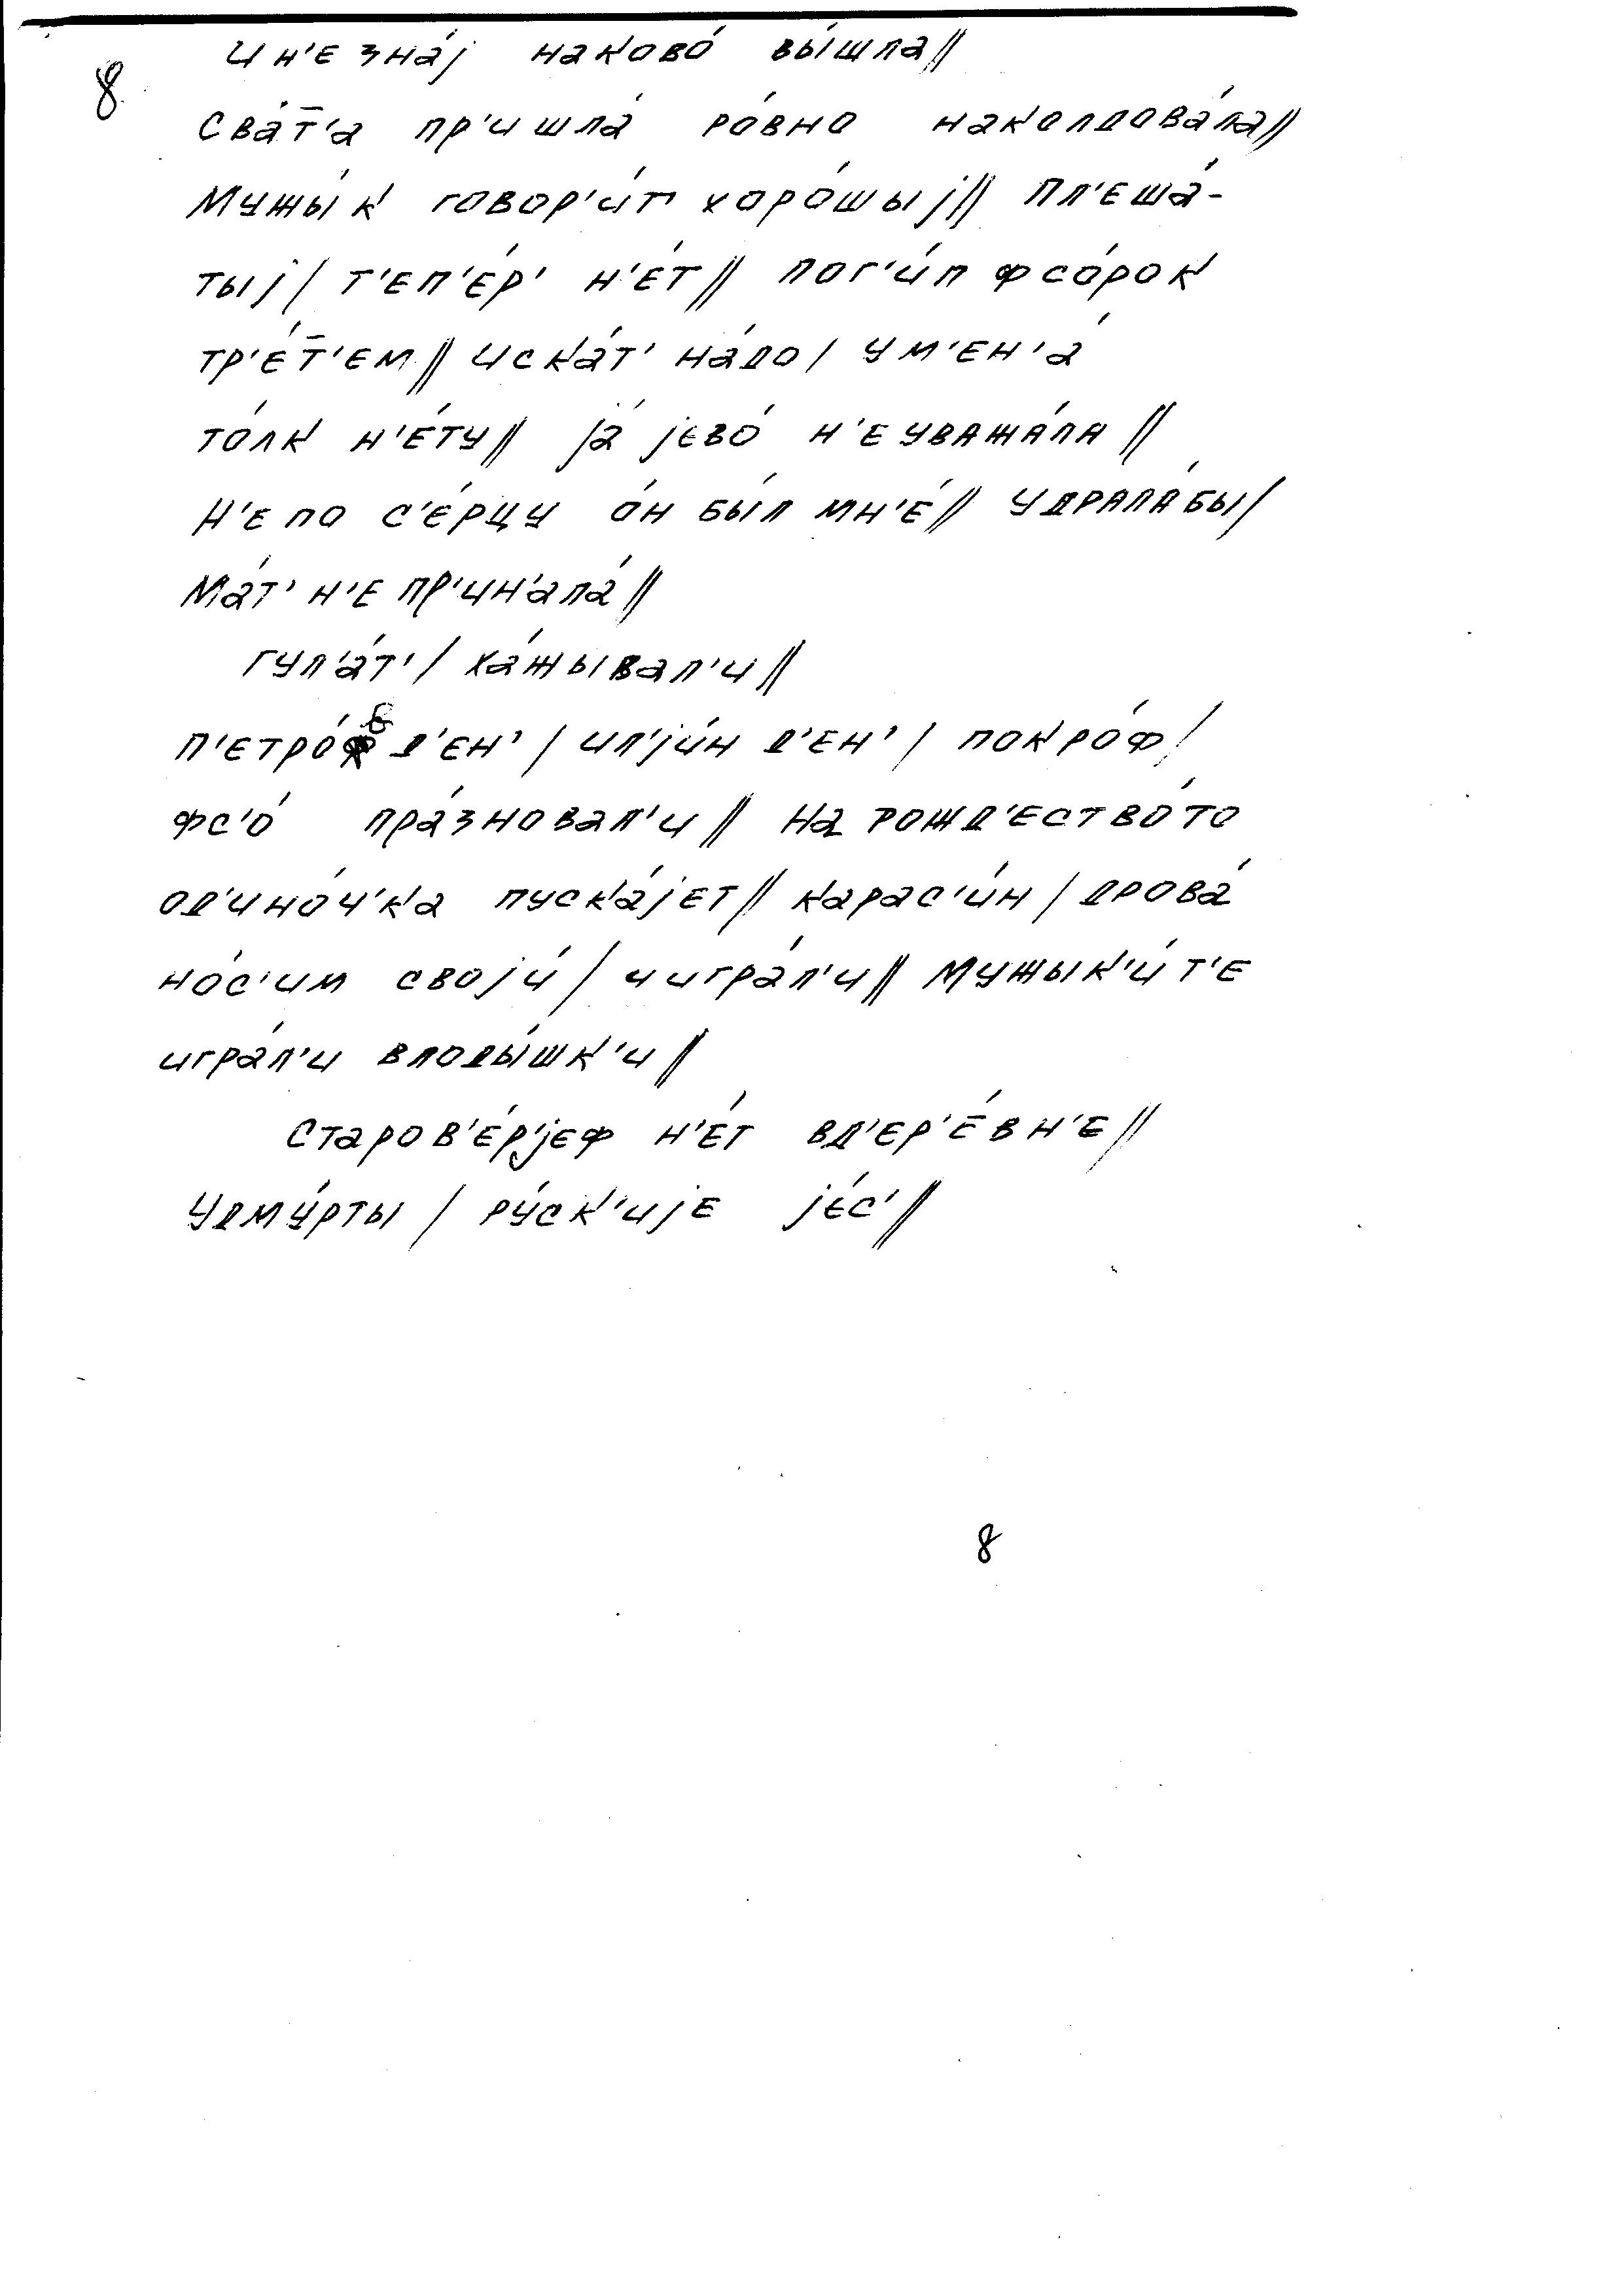 и н'е зна́ј наково́ вы́шла//
8
Сва́т̄'а пр'ишла́ ро́вно наколдова́ла//
Мужы́к говор'и́т хоро́шыј// пл'еша́-
тыј/ т'еп'е́р' н'е́т// пог'и́п фсо́рок
тр'е́т̄'ем// иска́т' на́до/ ум'ен'а́
то́лк н'е́ту// ја́ јево́ н'еуважа́ла//
Н'е по с'е́рцу о́н бы́л мн'е́// удрала́бы/
Ма́т' н'е пр'ин'ала́//
гул'а́т'/ ха́жывал'и//
п'етро́в д'ен'/ ил'ји́н д'ен'/ покро́ф/
фс'о́ пра́зновал'и// На рожд'ество́то
од'ино́ч'ка пуска́јет// карас'и́н/ дрова́
но́с'им своји́/ и игра́л'и// Мужык'и́т'е
игра́л'и влоды́шк'и//
Старов'е́р'јеф н'е́т вд'ер'е́вн'е//
Удму́рты/ ру́ск'ије је́с'//
8